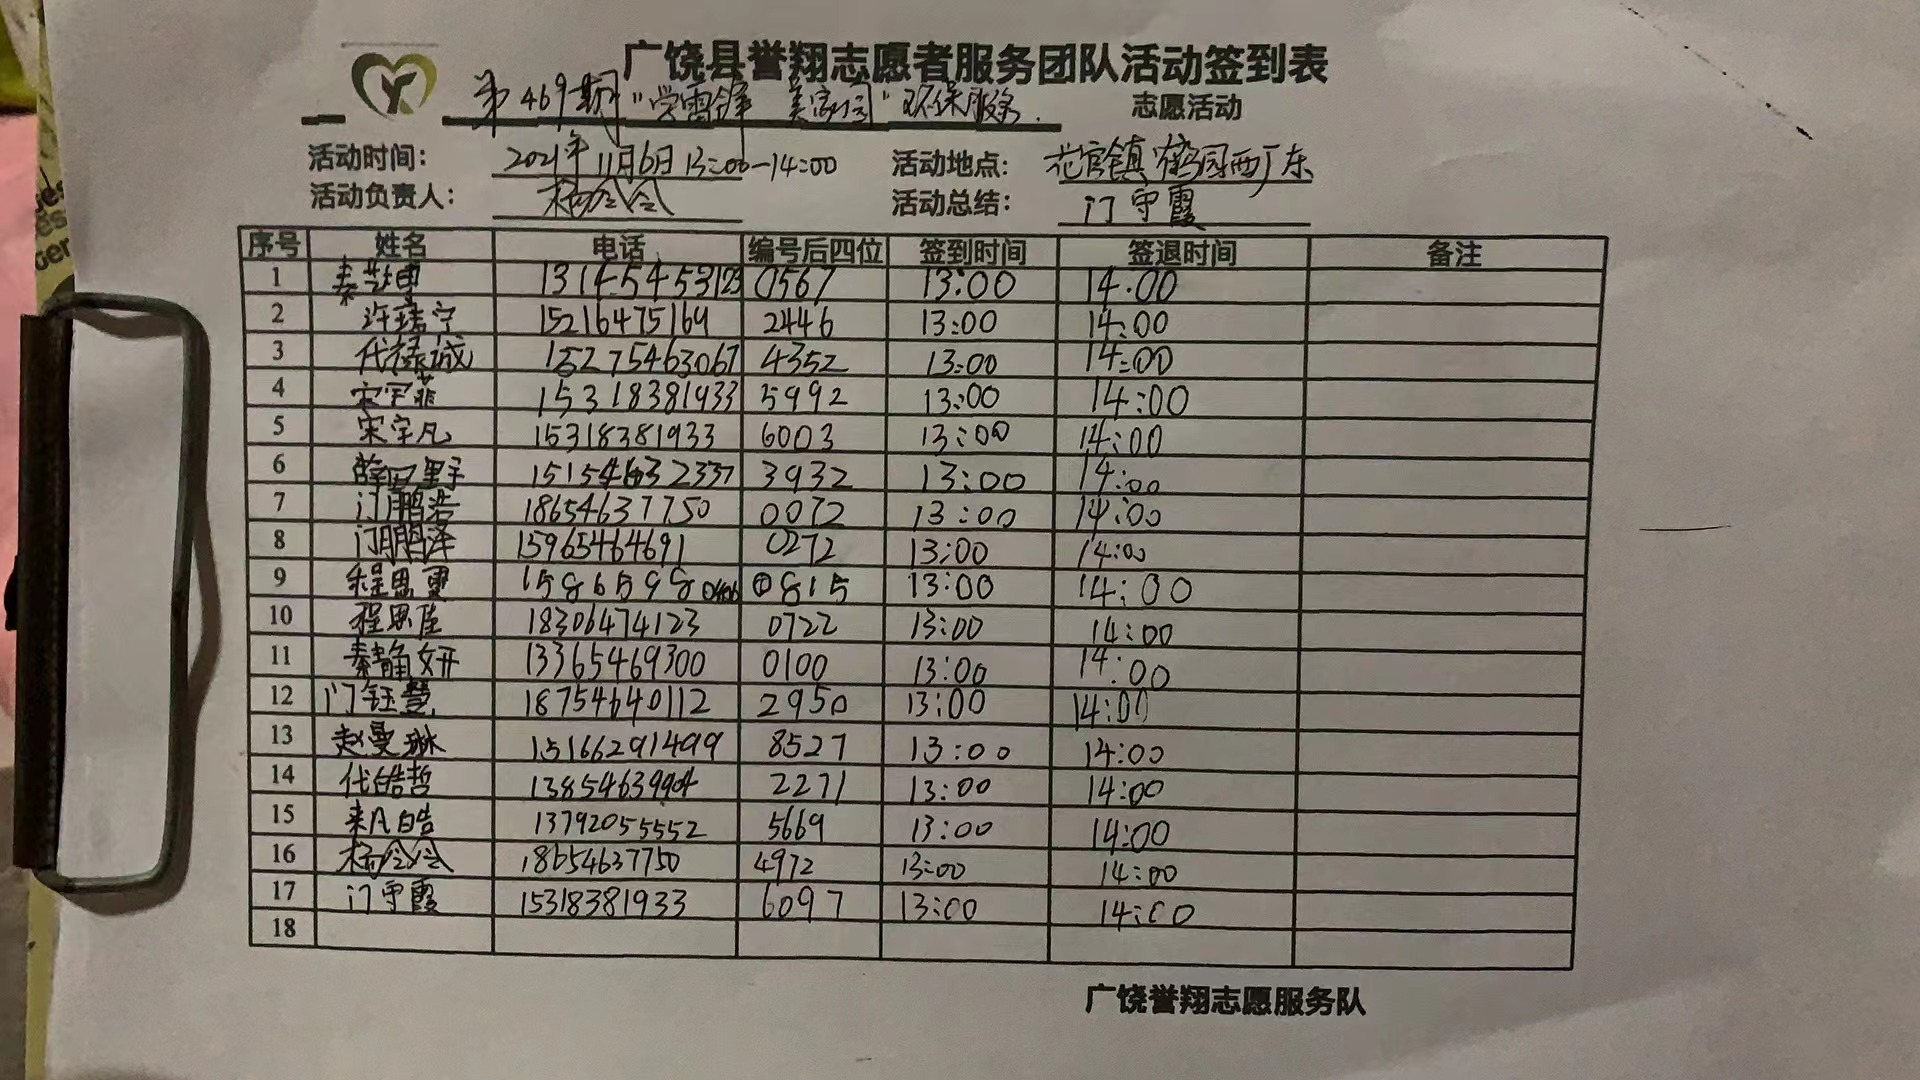 广饶县誉翔志愿者服务团队活动签到表
第469期"学雷锋 美家园"环保服务. 志愿活动
活动时间: 2021年11月6日13:00-14:00 活动地点: 花官镇 西厂东
活动负责人: 杨会会 活动总结: 门守霞
序号 姓名 电话 编号后四位 签到时间 签退时间 备注
1 13145453123 0567 13:00 14:00
2 许靖宁 15216475169 2446 13:00 14:00
3 代禄诚 15275463067 4352 13:00 14:00
4 宋宇菲 15318381933 5992 13:00 14:00
5 宋宇凡 15318381933 6003 13:00 14:00
6 15154632337 3932 13:00 14:00
7 门鹏浩 18654637750 0072 13:00 14:00
8 门鹏泽 15965464691 0272 13:00 14:00
9 程思雯 0815 13:00 14:00
10 程思佳 18306474123 0722 13:00 14:00
11 秦静妍 13365469300 0100 13:00 14:00
12 门钰慧 18754640112 2950 13:00 14:00
13 赵曼琳 15166291499 8527 13:00 14:00
14 代皓哲 13854639904 2271 13:00 14:00
15 来凡皓 13792055552 5669 13:00 14:00
16 杨会会 18654637750 4972 13:00 14:00
17 门守霞 15318381933 6097 13:00 14:00
18
广饶誉翔志愿服务队